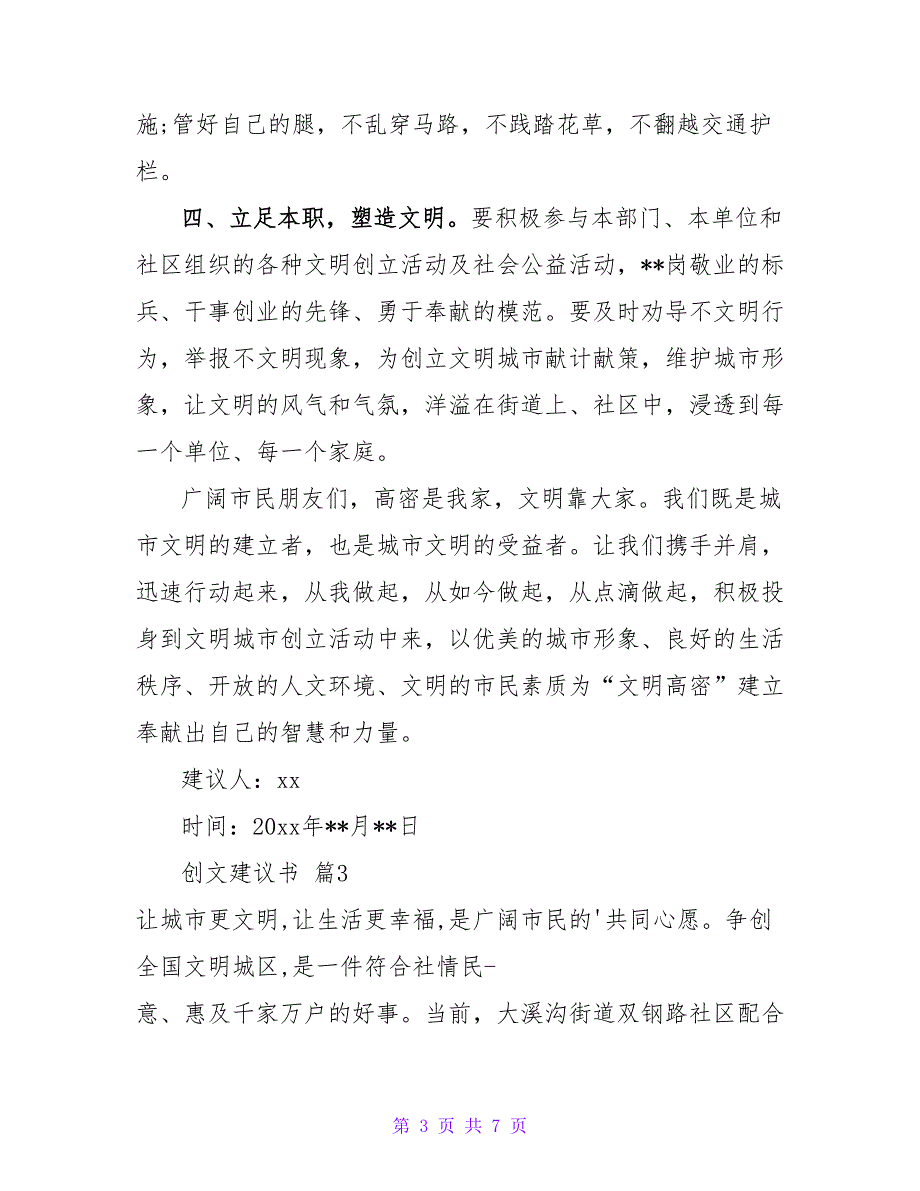 施;管好自己的腿，不乱穿马路，不践踏花草，不翻越交通护
栏。
四、立足本职，塑造文明。要积极参与本部门、本单位和
社区组织的各种文明创立活动及社会公益活动，**岗敬业的标
兵、干事创业的先锋、勇于奉献的模范。要及时劝导不文明行
为，举报不文明现象，为创立文明城市献计献策，维护城市形
象，让文明的风气和气氛，洋溢在街道上、社区中，浸透到每
一个单位、每一个家庭。
广阔市民朋友们，高密是我家，文明靠大家。我们既是城
市文明的建立者，也是城市文明的受益者。让我们携手并肩，
迅速行动起来，从我做起，从如今做起，从点滴做起，积极投
身到文明城市创立活动中来，以优美的城市形象、良好的生活
秩序、开放的人文环境、文明的市民素质为“文明高密”建立
奉献出自己的智慧和力量。
建议人：xx
时间：20xx年**月**日
创文建议书 篇3
让城市更文明,让生活更幸福,是广阔市民的'共同心愿。争创
全国文明城区,是一件符合社情民-
意、惠及千家万户的好事。当前，大溪沟街道双钢路社区配合
第 3 页 共 7 页